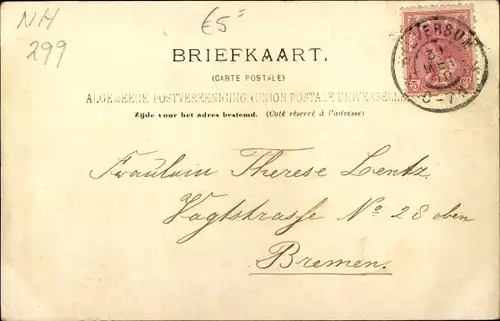 NH
299
€5=
BRIEFKAART.
(CARTE POSTALE)
ALGEMEENE POSTVEREENIGING (UNION POSTALE UNIVERSELLE)
Zijde voor het adres bestemd. (Côté réservé à l'adresse)
Fräulein Therese Lentz.
Vagtstrasse No 28 oben
Bremen.